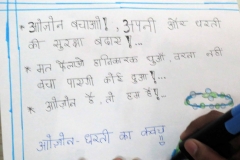 * ओज़ोन बचाओ!, अपनी और धरती
की सुरक्षा बढ़ाए!...
* मत फैलाओ हानिकारक धुआँ, वरना नहीं
बचा पाएगी कोई दुआ!...
* ओज़ोन है, तो हम है!...
ओज़ोन - धरती का कवच